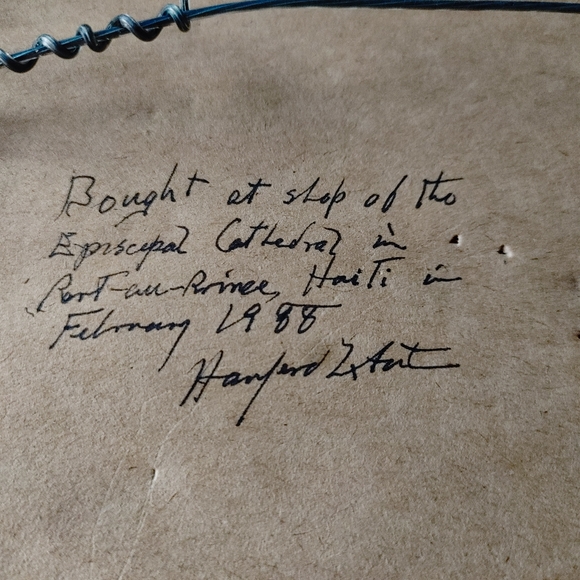 Bought at shop of the
Episcopal Cathedral in
Port-au-Prince, Haiti in
February 1988